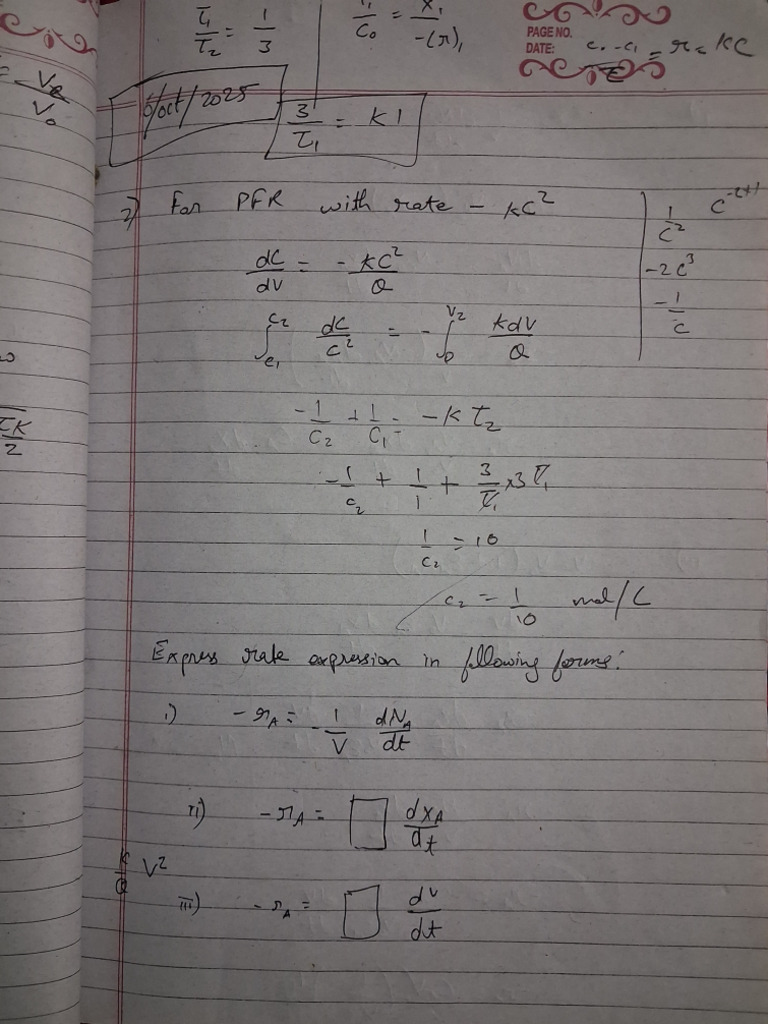 τ₁/τ₂ = 1/3
τ₁/C₀ = X₁/-(r)₁
PAGE NO.
DATE:
C₀-C₁/τ = r = KC
V₀
6/Oct/2025
3/τ₁ = K1
2) For PFR with rate - KC²
1/C²
C⁻²⁺¹
dC/dV = -KC²/Q
-2C³
∫_{C₁}^{C₂} dC/C² = -∫_{0}^{V₂} KdV/Q
-1/C
-1/C₂ + 1/C₁ = -K τ₂
τK/2
-1/C₂ + 1/1 + 3/τ₁ × 3τ₁
1/C₂ = 10
C₂ = 1/10 mol/L
Express rate expression in following forms:
i) -rA = -1/V dNA/dt
ii) -rA = □ dXA/dt
K/Q V²
iii) -rA = □ dv/dt